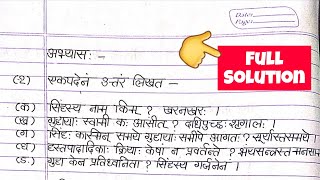 Date:
Page:
FULL
SOLUTION
अभ्यासः -
(२) एकपदेन उत्तरं लिखत -
(क) सिंहस्य नाम किम् ? खरनखरः ।
(ख) गुहायाः स्वामी कः आसीत् ? दधिपुच्छः शृगालः ।
(ग) सिंहः कस्मिन् समये गुहायाः समीपे आगतः ? सूर्यास्तसमये ।
(घ) हस्तपादादिकाः क्रियाः केषां न प्रवर्तन्ते ? भयसन्त्रस्तमानसाम्
(ङ) गुहा केन प्रतिध्वनिता ? सिंहस्य गर्जनेन ।